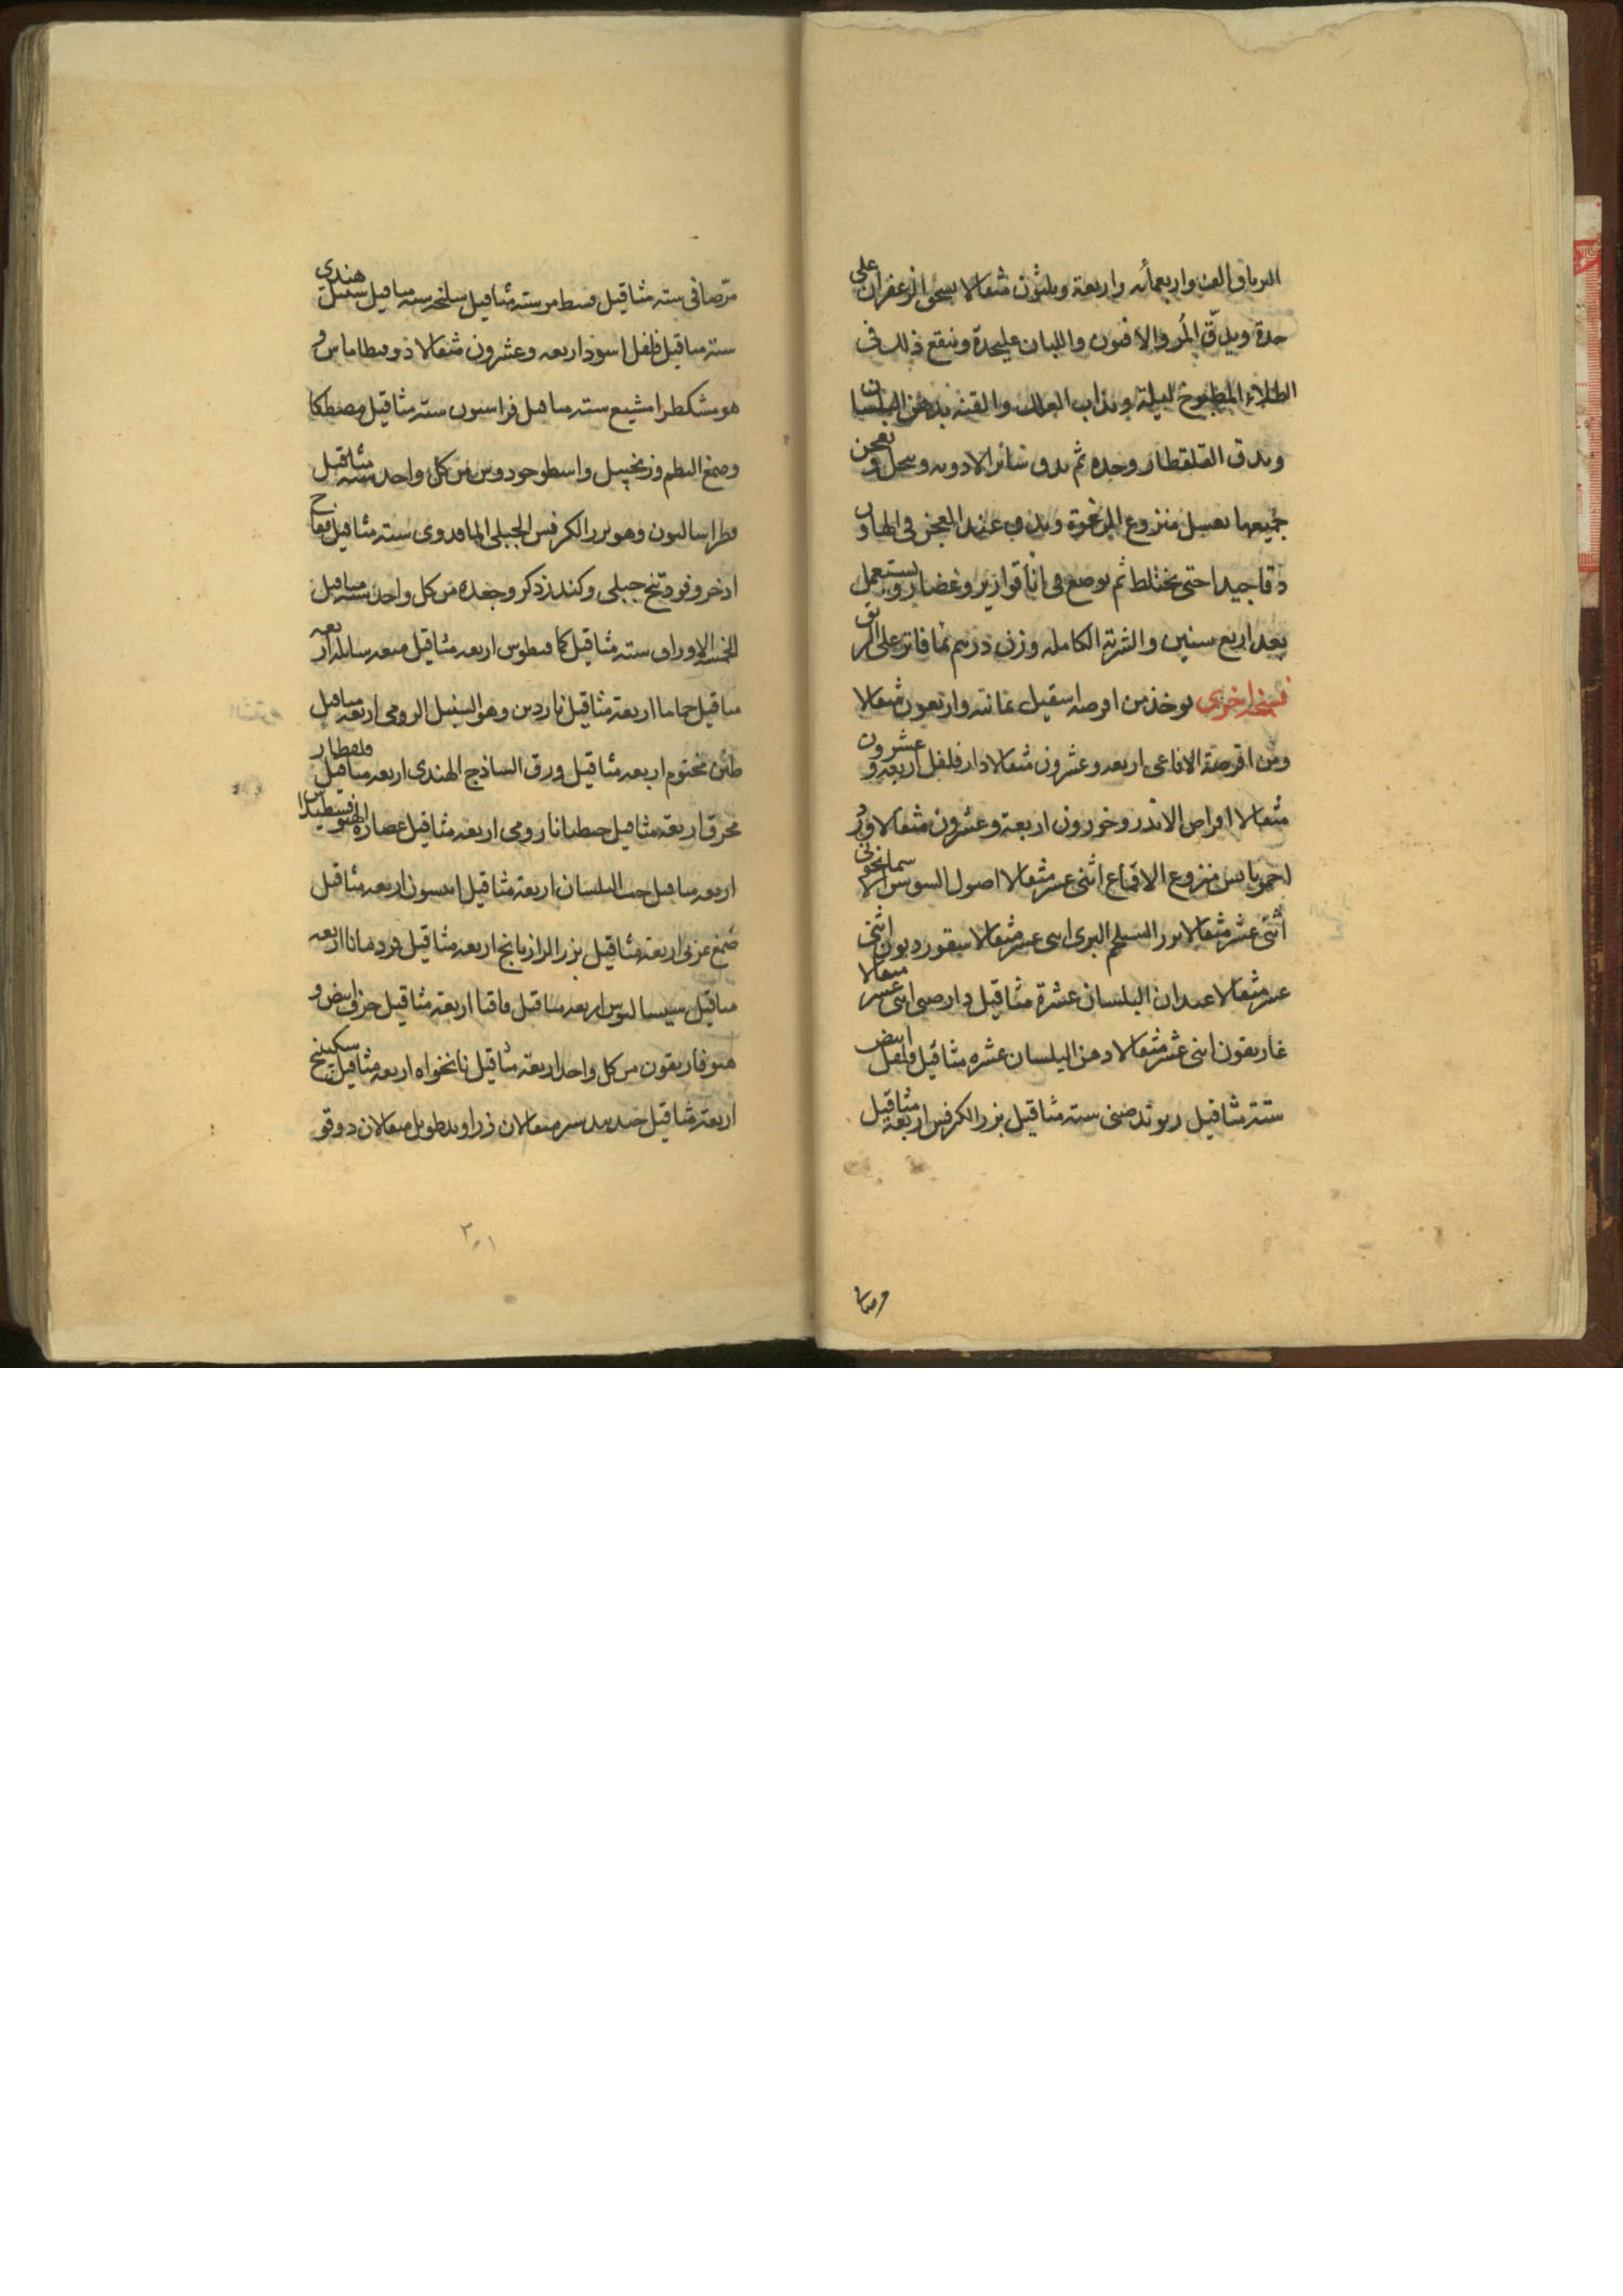 الترياق الف واربعمائه واربعة وثلثون مثقالا يسحق الزعفران على
حدة ويدق المر والافيون واللبان عليحدة وينقع ذلك في
الطلاء المطبوخ ليلة ويذاب العلك والقنه بدهن البلسان
ويدق القلقطار وحده ثم يدق سائر الادويه وينخل ويعجن
جميعها بعسل منزوع الرغوة ويدق عند العجن في الهاون
دقا جيدا حتى يختلط ثم يوضع في انا قوارير وغضار ويستعمل
بعد اربع سنين والشربة الكامله وزن درهم بما فاتر على الريق
نسخه اخرى يوخذ من اقرصه اسقيل ثمانيه واربعون مثقالا
ومن اقرصة الافاعي اربعه وعشرون مثقالا دار فلفل اربعه وعشرون
مثقالا اقراص الاندروخورون اربعة وعشرون مثقالا ورد
احمر يابس منزوع الاقماع اثني عشر مثقالا اصول السوس الاسمانجوني
اثني عشر مثقالا بزر السلجم البري اثني عشر مثقالا سقورديون اثني
عشر مثقالا عيدان البلسان عشرة مثاقيل دارصيني اثني عشر مثقالا
غاريقون اثني عشر مثقالا دهن البلسان عشره مثاقيل فلفل ابيض
ستة مثاقيل ريوند صيني سته مثاقيل بزر الكرفس اربعة مثاقيل
مر صافي
مر صافي سته مثاقيل قسط مر سته مثاقيل سليخه سته مثاقيل سنبل هندي
سته مثاقيل فلفل اسود اربعه وعشرون مثقالا دوقطاماس و
هو مشكطرامشيع سته مثاقيل فراسيون سته مثاقيل مصطكا
وصمغ البطم وزنجبيل واسطوخودوس من كل واحد سته مثاقيل
فطراساليون وهو بزر الكرفس الجبلي الماقدوني سته مثاقيل فقاح
اذخر وفودنج جبلي وكندر ذكر وجعده من كل واحد سته مثاقيل
الخمسه الاوراق سته مثاقيل كمافيطوس اربعه مثاقيل ميعه سايله اربعه
مثاقيل حاما اربعة مثاقيل ناردين وهو السنبل الرومي اربعه مثاقيل
طين مختوم اربعه مثاقيل ورق الساذج الهندي اربعه مثاقيل قلقطار
محرق اربعة مثاقيل جنطيانا رومي اربعه مثاقيل عصارة
اربعه مثاقيل حب البلسان اربعة مثاقيل انيسون اربعه مثاقيل
صمغ عربي اربعة مثاقيل بزر الرازيانج اربعة مثاقيل قردمانا اربعه
مثاقيل سيساليوس اربعه مثاقيل قاقيا اربعة مثاقيل حرف ابيض و
هيوفاريقون من كل واحد اربعة مثاقيل نانخواه اربعه مثاقيل سكبينج
اربعة مثاقيل جندبيدستر مثقالان زراوند طويل مثقالان دوقو